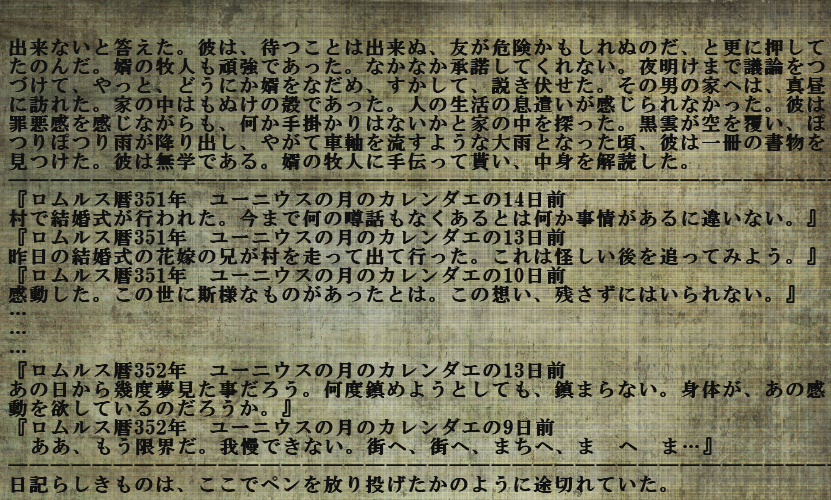 出来ないと答えた。彼は、待つことは出来ぬ、友が危険かもしれぬのだ、と更に押して
たのんだ。婿の牧人も頑強であった。なかなか承諾してくれない。夜明けまで議論をつ
づけて、やっと、どうにか婿をなだめ、すかして、説き伏せた。その男の家へは、真昼
に訪れた。家の中はもぬけの殻であった。人の生活の息遣いが感じられなかった。彼は
罪悪感を感じながらも、何か手掛かりはないかと家の中を探った。黒雲が空を覆い、ぽ
つりぽつり雨が降り出し、やがて車軸を流すような大雨となった頃、彼は一冊の書物を
見つけた。彼は無学である。婿の牧人に手伝って貰い、中身を解読した。
『ロムルス暦351年　ユーニウスの月のカレンダエの14日前
村で結婚式が行われた。今まで何の噂話もなくあるとは何か事情があるに違いない。』
『ロムルス暦351年　ユーニウスの月のカレンダエの13日前
昨日の結婚式の花嫁の兄が村を走って出て行った。これは怪しい後を追ってみよう。』
『ロムルス暦351年　ユーニウスの月のカレンダエの10日前
感動した。この世に斯様なものがあったとは。この想い、残さずにはいられない。』
…
…
…
『ロムルス暦352年　ユーニウスの月のカレンダエの13日前
あの日から幾度夢見た事だろう。何度鎮めようとしても、鎮まらない。身体が、あの感
動を欲しているのだろうか。』
『ロムルス暦352年　ユーニウスの月のカレンダエの9日前
　ああ、もう限界だ。我慢できない。街へ、街へ、まちへ、ま　へ　ま…』
日記らしきものは、ここでペンを放り投げたかのように途切れていた。